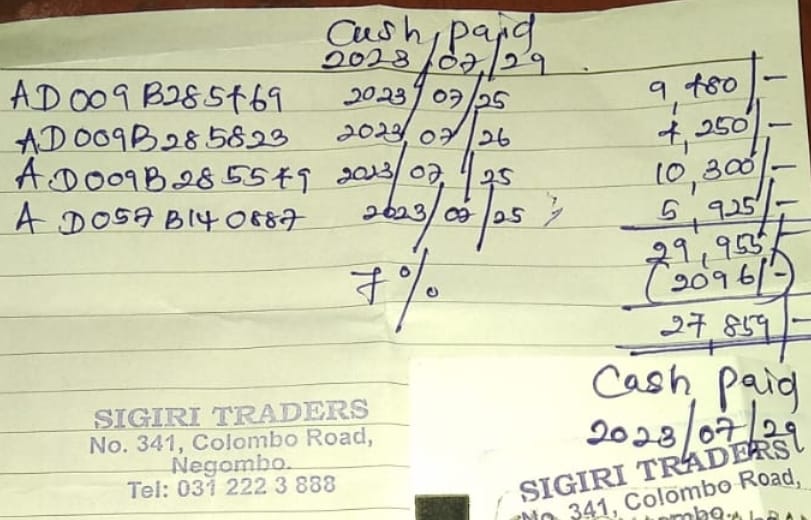 Cash paid
2023/07/29
AD009B285469 2023/07/25 9,480/-
AD009B285823 2023/07/26 4,250/-
AD009B285549 2023/07/25 10,300/-
AD057B140887 2023/07/25 5,925/-
29,955/-
7% (2096/-)
27,859/-
Cash paid
2023/07/29
SIGIRI TRADERS
No. 341, Colombo Road,
Negombo.
Tel: 031 222 3 888
SIGIRI TRADERS
No. 341, Colombo Road,